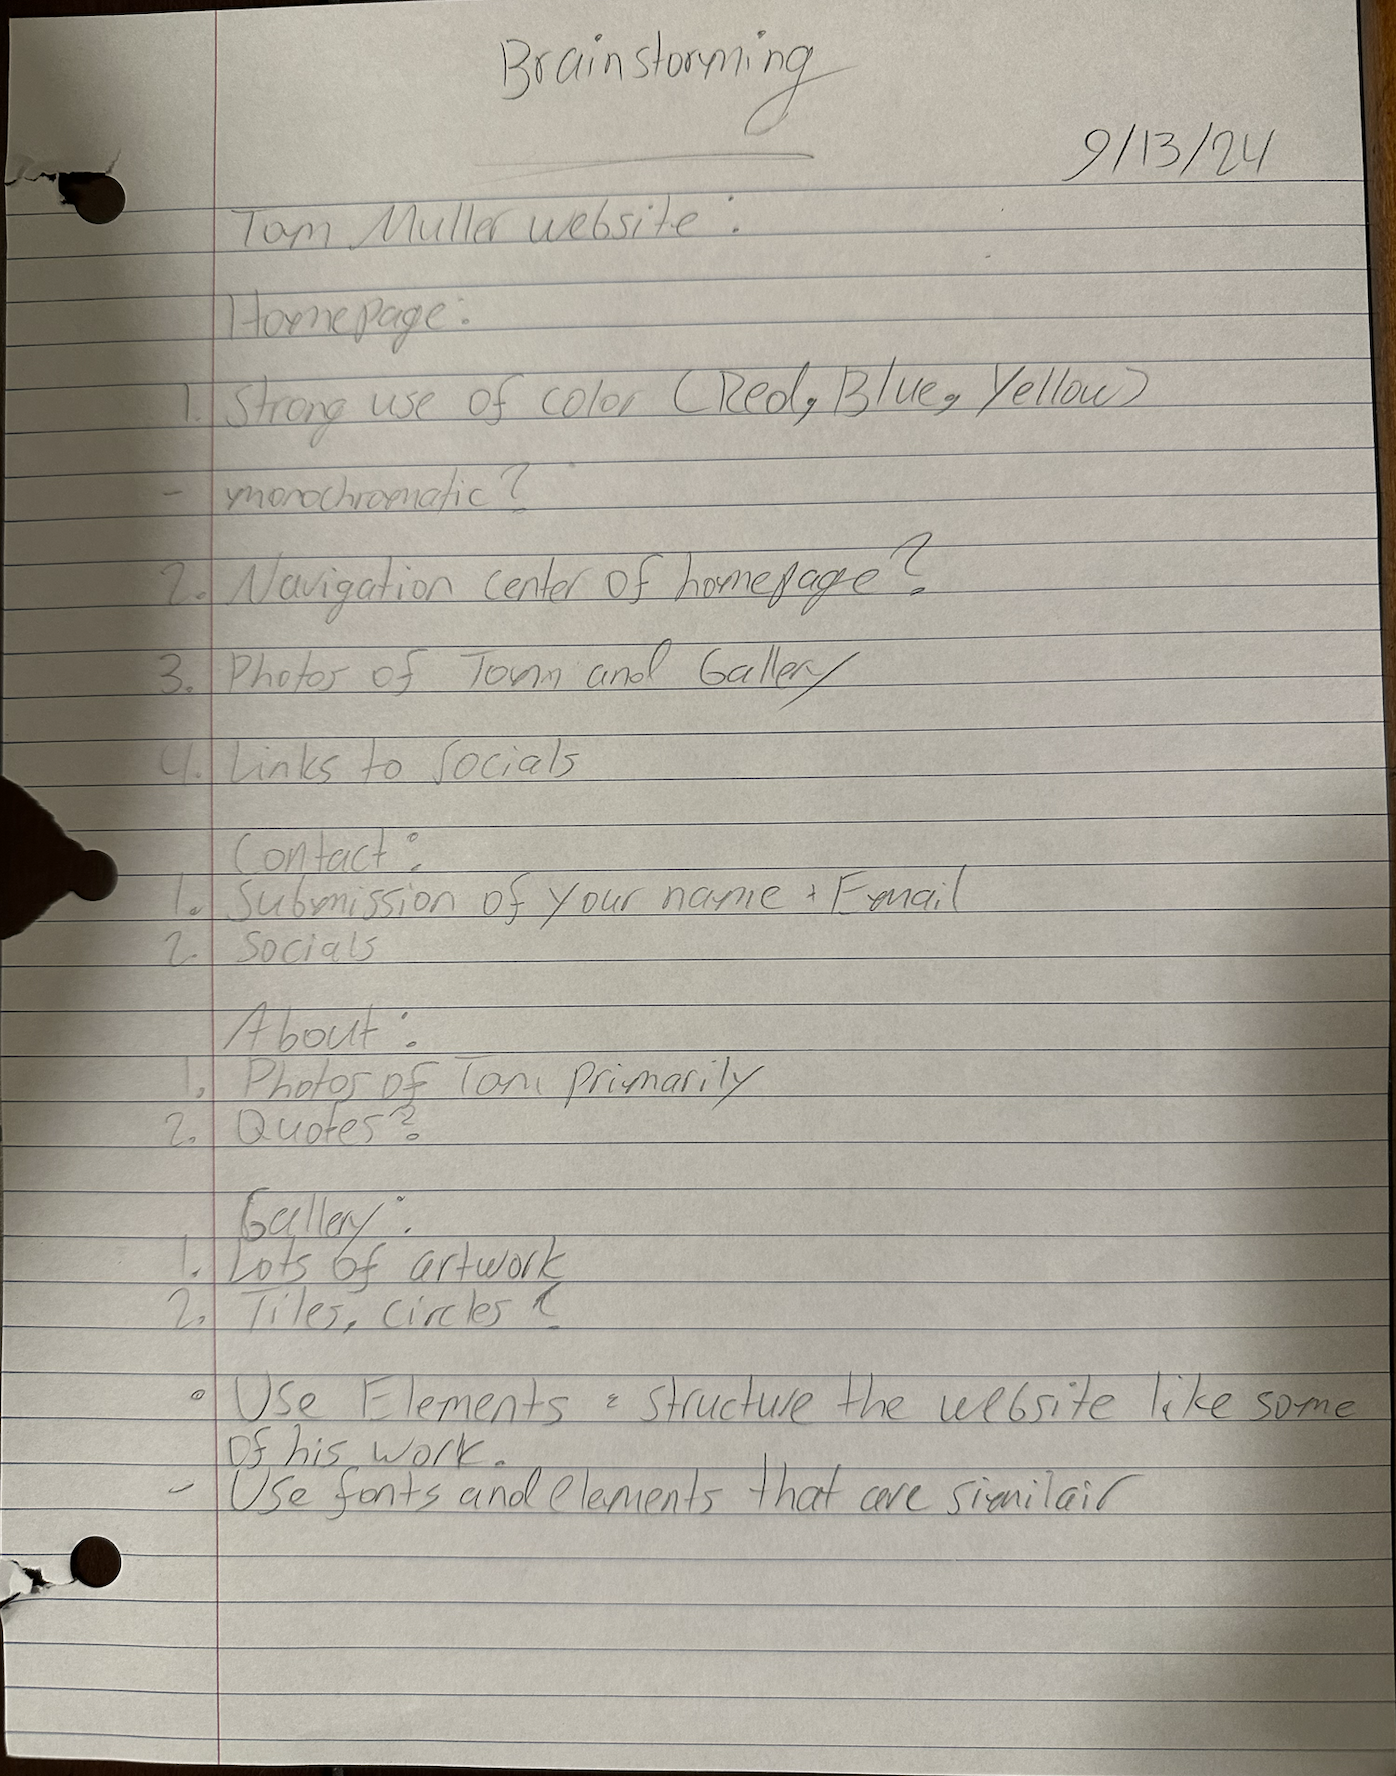 Brainstorming
9/13/24
Tom Muller website:
Homepage:
1. Strong use of color (Red, Blue, Yellow)
- monochromatic?
2. Navigation center of homepage?
3. Photos of Tom and Gallery
4. Links to socials
Contact:
1. Submission of your name + Email
2. Socials
About:
1. Photos of Tom primarily
2. Quotes?
Gallery:
1. Lots of artwork
2. Tiles, circles?
◦ Use Elements & structure the website like some
of his work.
- Use fonts and elements that are similair